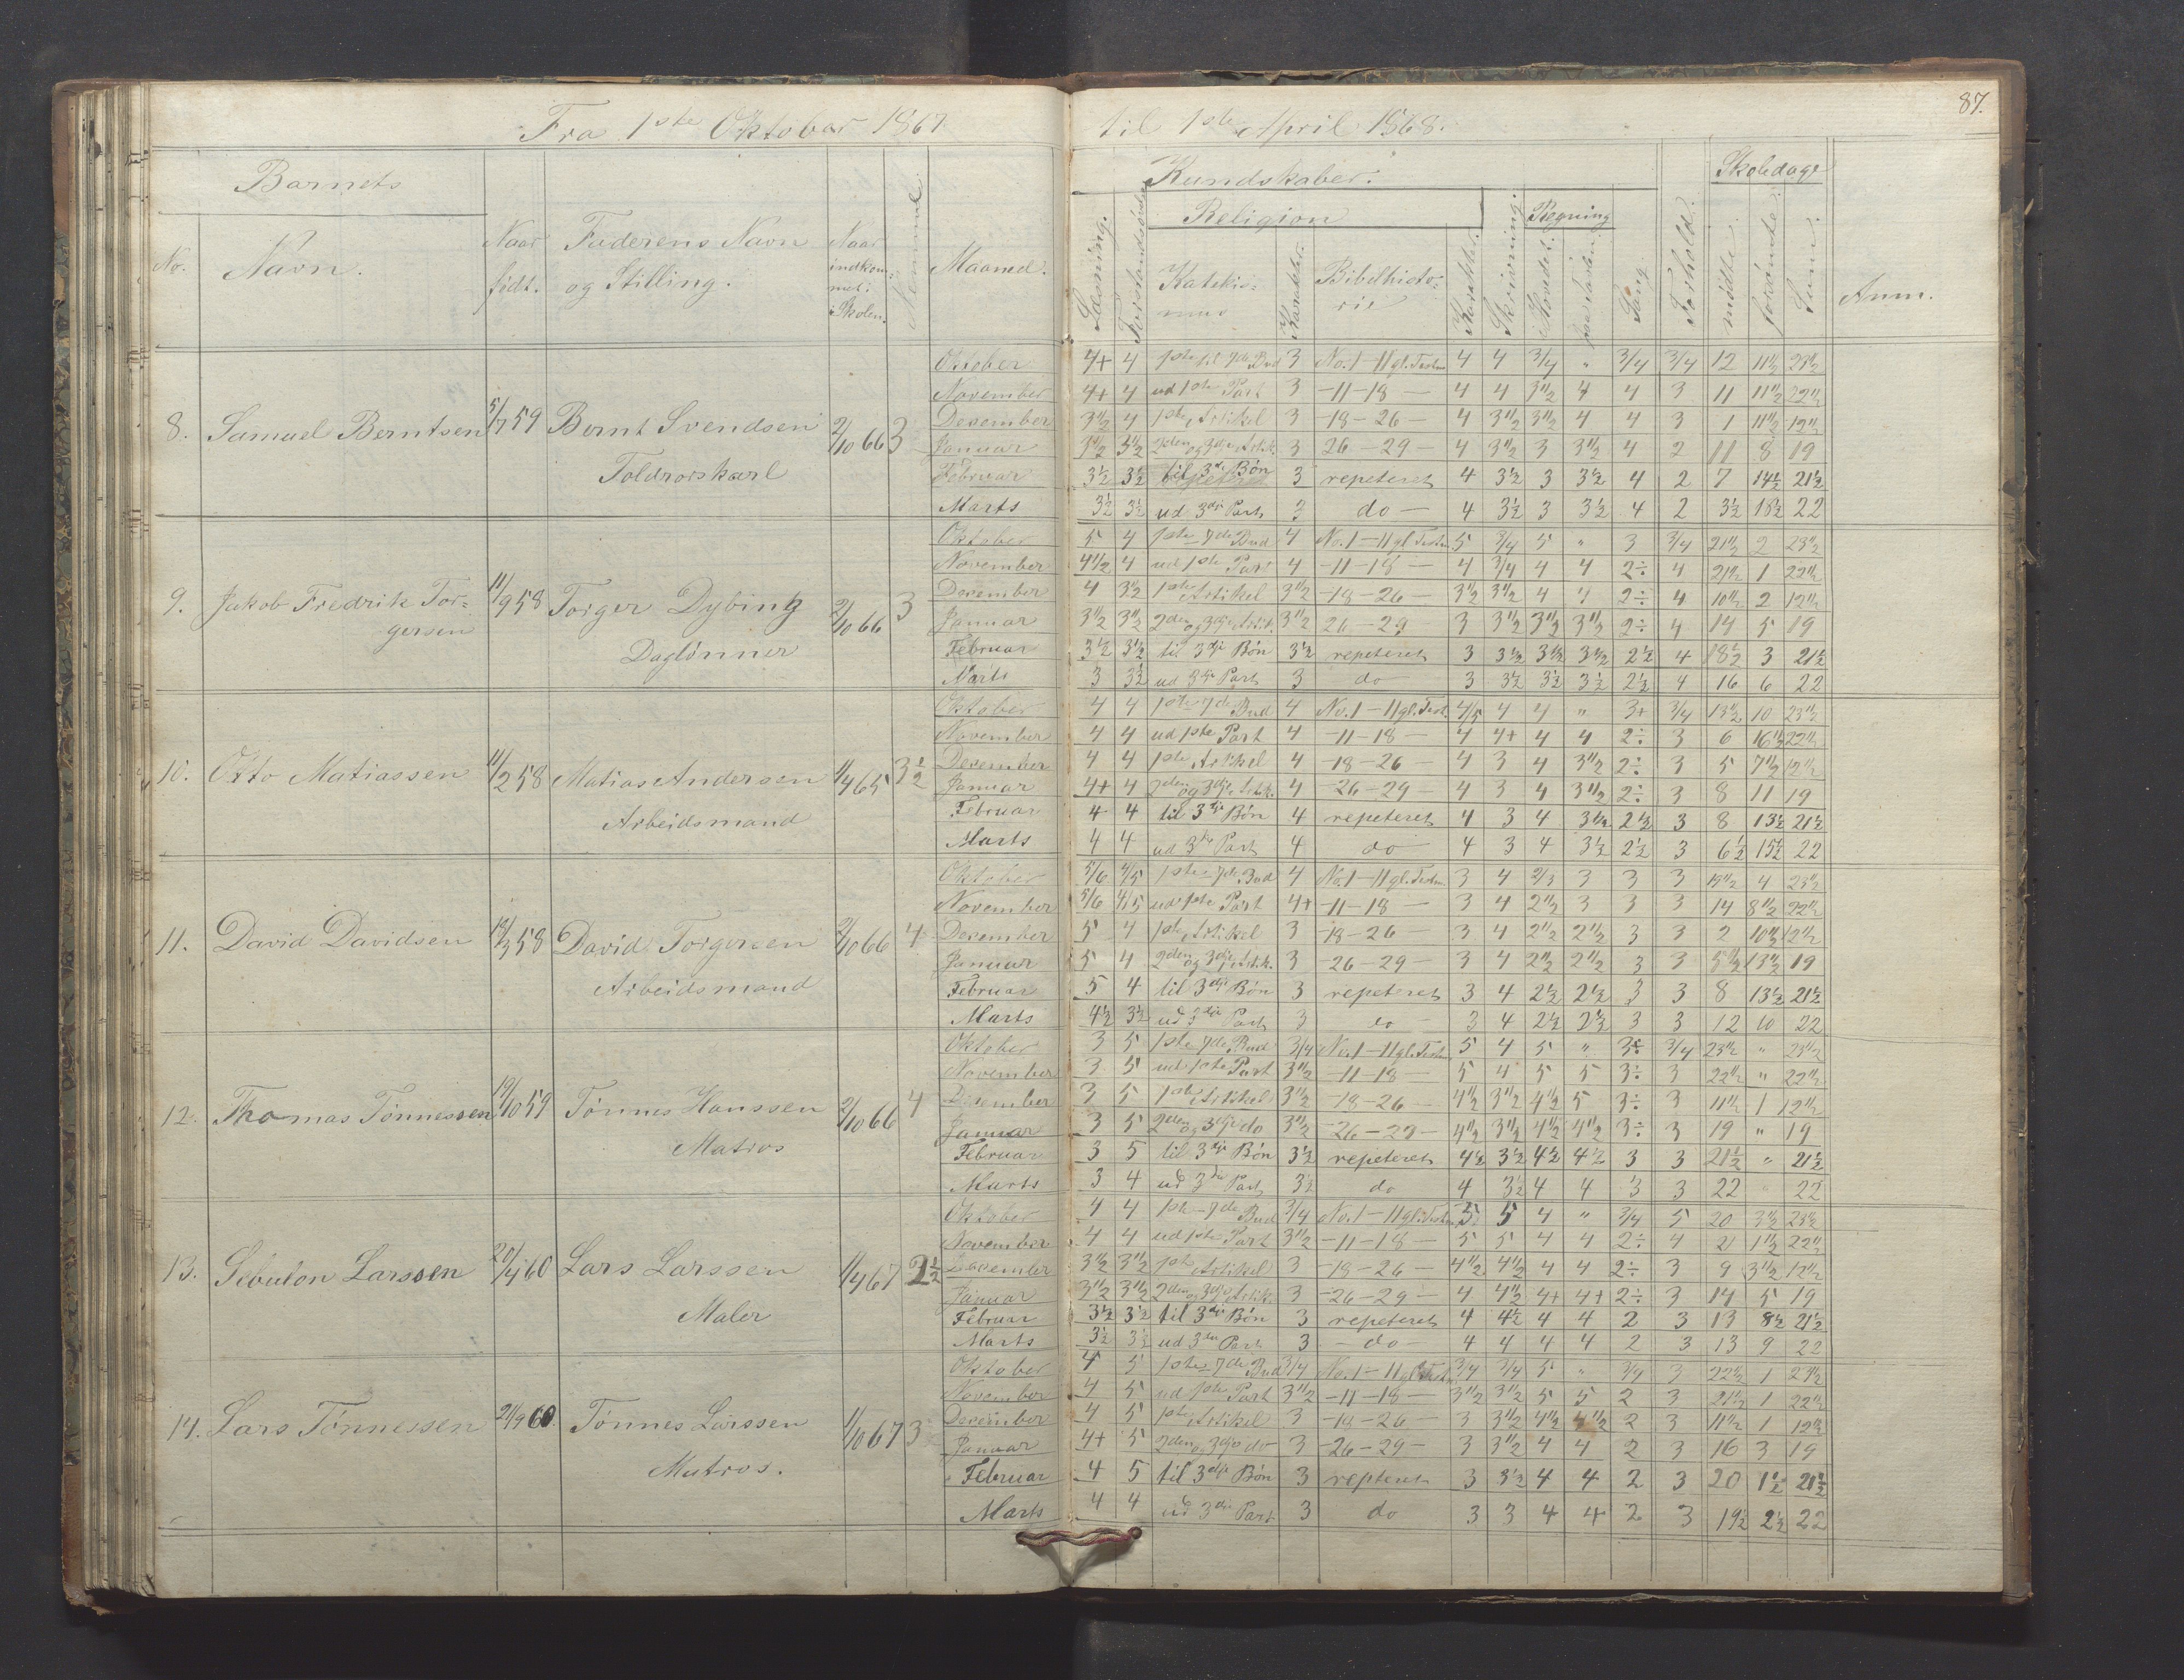 87.
Fra 1ste Oktober 1867 til 1ste April 1868.
Barnets
Kundskaber.
Skoledage
Religion
Regning
No. Navn. Naar født. Faderens Navn og Stilling. Naar indkommet i Skolen. Maaned. Læsning. Katekismus Karakter. Bibelhistorie Karakter. Skrivning. Hovedet. Sang Forhold. mødte. forsømte. Sum. Anm.
Oktober 4+ 4 1ste til 7de Bud 3 No. 1-11 gl. Testm. 4 4 3/4 " 3/4 3/4 12 11½ 23½
November 4+ 4 ud 1ste Part 3 -11-18- 4 4 3½ 4 4 3 11 11½ 22½
8. Samuel Berntsen 5/7 59 Bernt Svendsen 2/10 66 3 Desember 3½ 4 1ste Artikel 3 -18-26- 4 3½ 3½ 4 4 3 1 11½ 12½
Januar 3½ 3½ 2den og 3dje Artik. 3 26-29- 4 3½ 3 3½ 4 2 11 8 19
Toldrorskarl Februar 3½ 3½ til 3dje Bøn 3 repeteret 4 3½ 3 3½ 4 2 7 14½ 21½
Marts 3½ 3½ ud 3dje Part 3 do- 4 3½ 3 3½ 4 2 3½ 18½ 22
Oktober 5 4 1ste-7de Bud 4 No. 1-11 gl. Testm. 5 3/4 5 " 3 3/4 21½ 2 23½
November 4½ 4 ud 1ste Part 4 -11-18- 4 3/4 4 4 2÷ 4 21½ 1 22½
9. Jakob Fredrik Tor- 11/9 58 Torger Dybing 2/10 66 3 Desember 4 3½ 1ste Artikel 3½ -18-26- 3½ 3½ 4 4 2÷ 4 10½ 2 12½
gersen Januar 3½ 3½ 2den og 3dje Artik. 3½ 26-29 3 3½ 3½ 3½ 2÷ 4 14 5 19
Daglønner Februar 3½ 3½ til 3dje Bøn 3½ repeteret 3 3½ 3½ 3½ 2½ 4 18½ 3 21½
Marts 3 3½ ud 3dje Part 3 do 3 3½ 3½ 3½ 2½ 4 16 6 22
Oktober 4 4 1ste-7de Bud 4 No. 1-11 gl. Test. 4/5 4 4 " 3+ 3/4 13½ 10 23½
November 4 4 ud 1ste Part 4 -11-18- 4 4+ 4 4 2÷ 3 6 16½ 22½
10. Otto Matiassen 11/2 58 Matias Andersen 1/4 65 3½ Desember 4 4 1ste Artikel 4 -18-26- 4 3 4 3½ 2÷ 3 5 7½ 12½
Januar 4+ 4 2den og 3dje Artik. 4 -26-29- 4 3 4 3½ 2÷ 3 8 11 19
Arbeidsmand Februar 4 4 til 3dje Bøn 4 repeteret 4 3 4 3½ 2½ 3 8 13½ 21½
Marts 4 4 ud 3dje Part 4 do 4 3 4 3½ 2½ 3 6½ 15½ 22
Oktober 5/6 4/5 1ste-7de Bud 4 No. 1-11 gl. Testm. 3 4 2/3 3 3 3 19½ 4 23½
November 5/6 4/5 ud 1ste Part 4+ -11-18- 3 4 2½ 3 3 3 14 8½ 22½
11. David Davidsen 18/3 58 David Torgersen 2/10 66 4 Desember 5 4 1ste Artikel 3 -18-26- 3 4 2½ 2½ 3 3 2 10½ 12½
Januar 5 4 2den og 3dje Artik. 3 -26-29- 3 4 2½ 2½ 3 3 5½ 13½ 19
Arbeidsmand Februar 5 4 til 3dje Bøn 3 repeteret 3 4 2½ 2½ 3 3 8 13½ 21½
Marts 4½ 3½ ud 3dje Part 3 do 3 4 2½ 2½ 3 3 12 10 22
Oktober 3 5 1ste-7de Bud 3/4 No. 1-11 gl. Testm. 5 4 5 " 3÷ 3/4 23½ " 23½
November 3 5 ud 1ste Part 3½ -11-18- 5 4 5 5 3÷ 3 22½ " 22½
12. Thomas Tønnessen 19/10 59 Tønnes Hanssen 2/10 66 4 Desember 3 5 1ste Artikel 3½ -18-26- 4½ 3½ 4½ 5 3÷ 3 11½ 1 12½
Januar 3 5 2den og 3dje do 3½ -26-29- 4½ 3½ 4½ 4½ 3÷ 3 19 " 19
Matros Februar 3 5 til 3dje Bøn 3½ repeteret 4½ 3½ 4½ 4½ 3 3 21½ " 21½
Marts 3 4 ud 3die Part 3½ do 4 3½ 4 4 3 3 22 " 22
Oktober 4 4 1ste-7de Bud 3/4 No. 1-11 gl. Testm. 5 5 4 " 3/4 5 20 3½ 23½
November 4 4 ud 1ste Part 3½ -11-18- 5 5 4 4 2÷ 4 21 1½ 22½
13. Sebulon Larssen 21/4 60 Lars Larssen 1/4 67 2½ Desember 3½ 3½ 1ste Artikel 3 -18-26- 4½ 4½ 4 4 2÷ 3 9 3½ 12½
Januar 3½ 3½ 2den og 3dje Artik. 3 -26-29- 4 4½ 4+ 4+ 2÷ 3 14 5 19
Maler Februar 3½ 3½ til 3dje Bøn 3 repeteret 4 4½ 4 4 2 3 13 8½ 21½
Marts 3½ 3½ ud 3die Part 3 -do- 4 4 4 4 2 3 13 9 22
Oktober 4 5 1ste-7de Bud 3/4 No. 1-11 gl. Testm. 3/4 3/4 5 " 3/4 3 22½ 1 23½
November 4 5 ud 1ste Part 3½ -11-18- 3½ 3½ 5 5 2 3 21½ 1 22½
14. Lars Tønnessen 21/9 60 Tønnes Larssen 1/10 67 3 Desember 4 5 1ste Artikel 3 -18-26- 3 3½ 4½ 4½ 2 3 11½ 1 12½
Januar 4+ 5 2den og 3dje do 3 -26-29- 3 3½ 4 4 2 3 16 3 19
Matros. Februar 4 5 til 3dje Bøn 3 repteret 3 3½ 4 4 2 3 20 1½ 21½
Marts 4 4 ud 3die Part 3 do 3 3 4 4 2 3 19½ 2½ 22